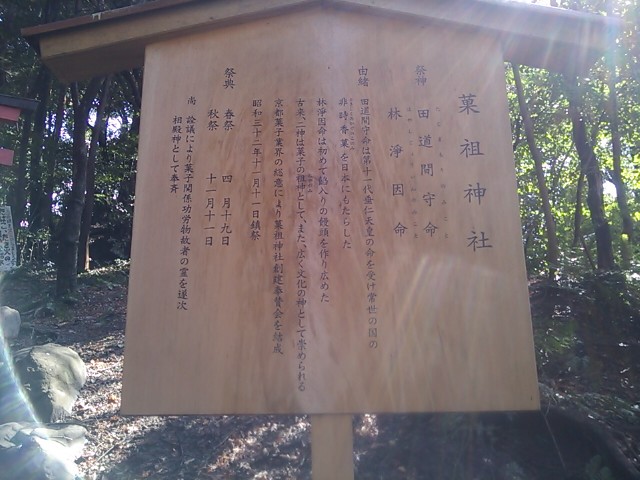 菓祖神社
祭神 田道間守命
林淨因命
由緒 田道間守命は第十一代垂仁天皇の命を受け常世の国の
非時香菓を日本にもたらした
林淨因命は初めて餡入りの饅頭を作り広めた
古来、二神は菓子の祖神として、また、広く文化の神として崇められる
京都菓子業界の総意により菓祖神社創建奉賛会を結成
昭和三十二年十一月十一日鎮祭
祭典 春祭 四月十九日
秋祭 十一月十一日
尚 詮議により菓子関係功労物故者の霊を逐次
相殿神として奉斉